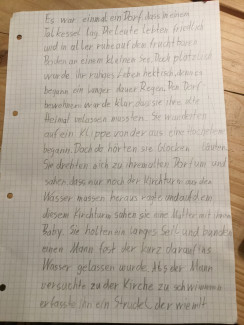 Es war einmal ein Dorf, dass in einem
Talkessel lag. Die Leute lebten friedlich
und in aller ruhe auf den fruchtbaren
Boden an einem kleinen See. Doch plötzlich
wurde ihr ruhiges Leben hektisch, denn es
begann ein langer dauer Regen. Den Dorf
bewohnern wurde klar, dass sie ihre alte
Heimat verlassen mussten. Sie wanderten
auf ein Klippe von der aus eine Hochebene
begann. Doch da hörten sie Glocken läuten.
Sie drehten sich zu ihrem alten Dorf um und
sahen das nur noch der Kirchturm aus den
Wasser massen heraus ragte und auf
diesem Kirchturm sahen sie eine Mutter mit ihrem
Baby. Sie holten ein langes Seil und banden
einen Mann fest der kurz darauf ins
Wasser gelassen wurde. Als der Mann
versuchte zu der Kirche zu schwimmen
erfasste ihn ein Strudel, der